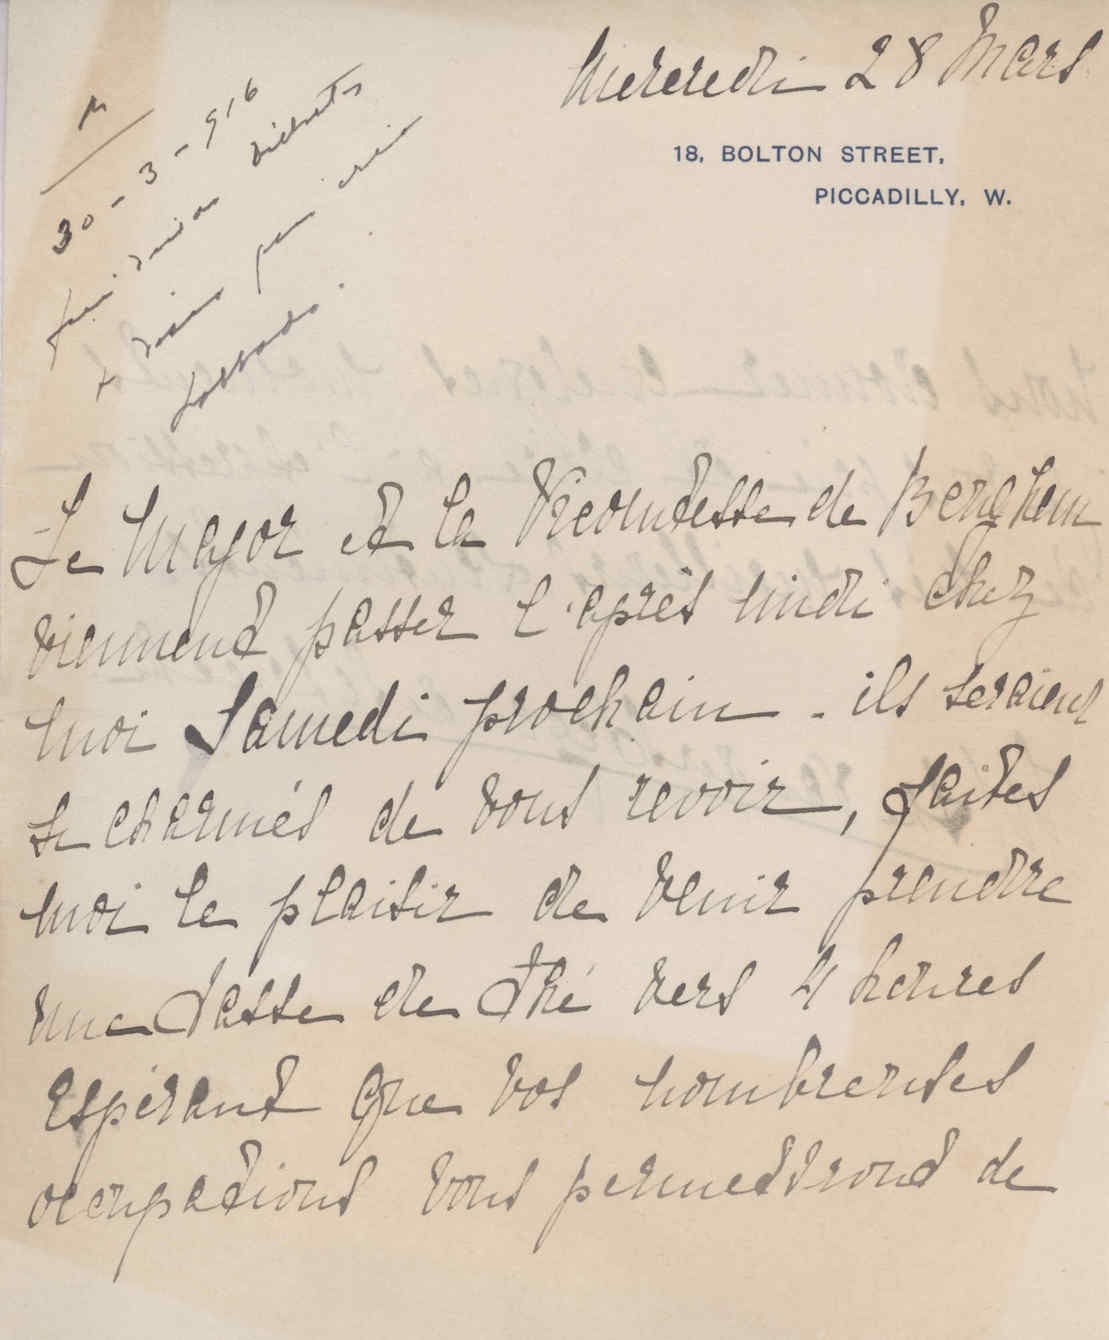 Mercredi 28 Mars
18, BOLTON STREET,
PICCADILLY, W.
30-3-916
Le Major et la Vicomtesse de Berghem
viennent passer l'après midi chez
moi Samedi prochain - ils seraient
si charmés de vous revoir, faites
moi le plaisir de venir prendre
une tasse de thé vers 4 heures
Espérant que vos nombreuses
occupations vous permettront de